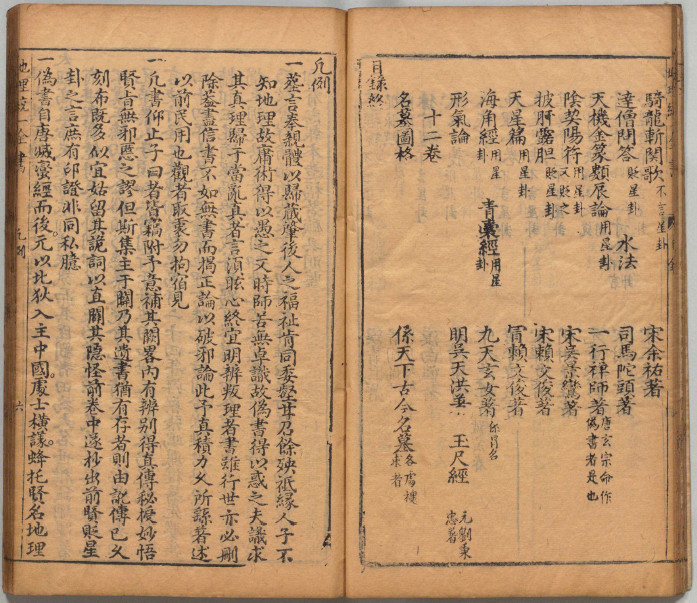 騎龍斬関歌 不言星卦 宋余祐著
達僧問答 貶星卦 水法 司馬陀頭著
天機金篆類辰論 用星卦 一行禅師著 唐玄宗命作偽書者是也
陰契陽符 用星卦又貶之 宋吳景鸞著
披肝露胆 貶星卦 宋賴文俊著
天星篇 用星卦 冐賴文俊著
海角經 用星卦 青囊經 用星卦 九天玄女著 係冐名
形氣論 明吳天洪著 玉尺經 元劉秉忠著
十二卷
名墓圖格 係天下古今名墓 各處 來者
目錄終
凡例
一塟言奉親體以歸藏肇後人之福祉肯同委壑弃召餘殃祇縁人子不
知地理故庸術得以愚之又時師苦無卓識故偽書得以惑之夫識求
其真理歸于當亂真者言須眩心終宜明辨叛理者書雖行世亦必刪
除葢盡信書不如無書而揭正論以破邪論此予真積力久所繇著述
以前民用也觀者取衷勿拘 見
一凡書仰止子曰者皆竊附予意補其闕畧內有辨别得真傳秘授妙悟
賢者無邪慝之謬但斯集主于闢乃其遺書猶有存者則由訛傳已久
刻布既多似宜姑留其詭詞以直闢其隱怪前卷中遂抄出前賢貶星
卦之言庶有印證非同私臆
一偽書自唐㓕蠻經而後元以北狄入主中國處士橫議蜂托賢名地理
地理 一全書 凡例 六